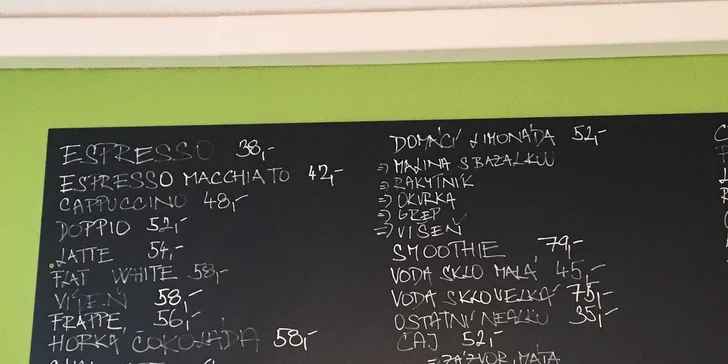 ESPRESSO 38,-
ESPRESSO MACCHIATO 42,-
CAPPUCCINO 48,-
DOPPIO 52,-
LATTE 54,-
FLAT WHITE 58,-
VÍDEŇ 58,-
FRAPPE, 56,-
HORKÁ ČOKOLÁDA 58,-
DOMÁCÍ LIMONÁDA 52,-
=> MALINA S BAZALKOU
=> RAKYTNÍK
=> OKURKA
=> GREP
=> VIŠEŇ
SMOOTHIE 79,-
VODA SKLO MALÁ 45,-
VODA SKLO VELKÁ 75,-
OSTATNÍ NEALKO 35,-
ČAJ 52,-
=> ZÁZVOR, MÁTA